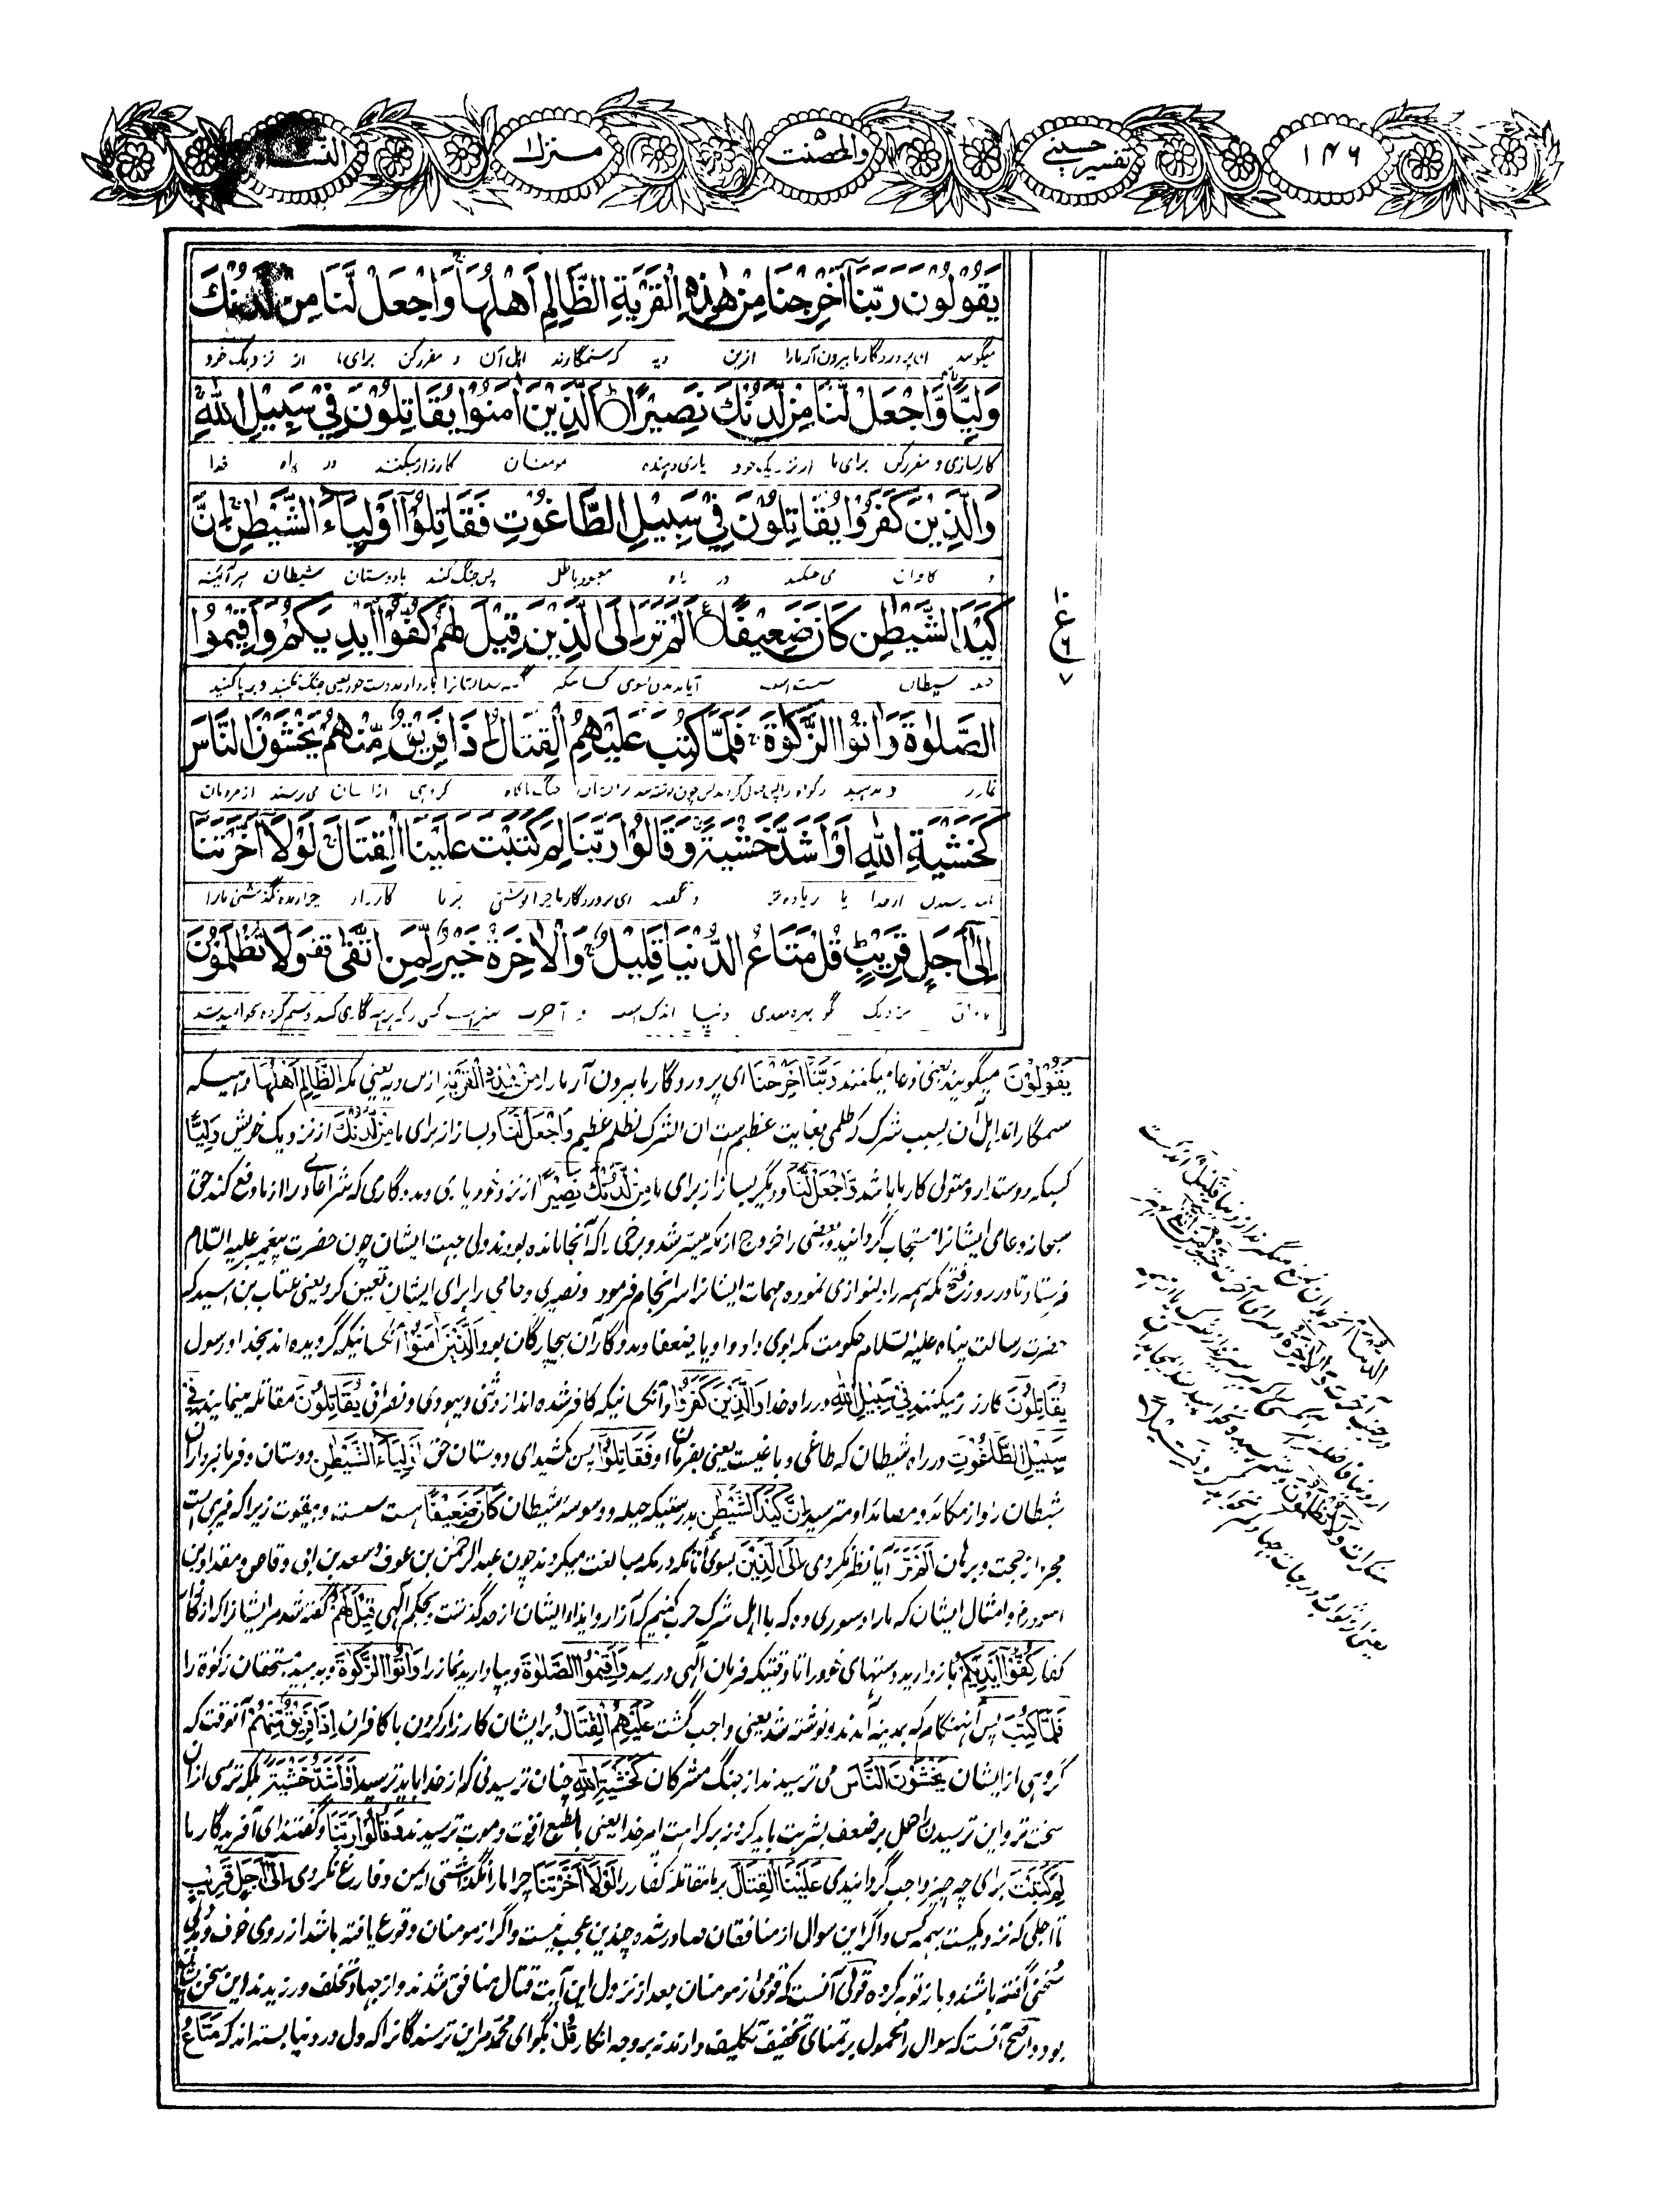 ۱۴۶
تفسیر حسینی
والمحصنت ۵
منزل ۱
النساء
يَقُوْلُوْنَ رَبَّنَآ اَخْرِجْنَا مِنْ هٰذِهِ الْقَرْيَةِ الظَّالِمِ اَهْلُهَا وَاجْعَلْ لَّنَا مِنْ لَّدُنْكَ
میگویند ای پروردگار ما بیرون آر ما را ازین دیه که ستمگارند اهل آن و مقرر کن برای ما از نزدیک خود
وَلِيًّا وَّاجْعَلْ لَّنَا مِنْ لَّدُنْكَ نَصِيْرًا اَلَّذِيْنَ اٰمَنُوْا يُقَاتِلُوْنَ فِيْ سَبِيْلِ اللّٰهِ
کارسازی و مقرر کن برای ما از نزدیک خود یاری دهنده مومنان کارزار میکنند در راه خدا
وَالَّذِيْنَ كَفَرُوْا يُقَاتِلُوْنَ فِيْ سَبِيْلِ الطَّاغُوْتِ فَقَاتِلُوْٓا اَوْلِيَآءَ الشَّيْطٰنِ اِنَّ
و کافران می جنگند در راه معبود باطل پس جنگ کنید با دوستان شیطان هر آئینه
كَيْدَ الشَّيْطٰنِ كَانَ ضَعِيْفًا اَلَمْ تَرَ اِلَى الَّذِيْنَ قِيْلَ لَهُمْ كُفُّوْٓا اَيْدِيَكُمْ وَاَقِيْمُوا
شیطان سست است آیا ندیدی بسوی کسانیکه گفته شد ایشانرا باز دارید دست خود یعنی جنگ نکنید و برپا کنید
الصَّلٰوةَ وَاٰتُوا الزَّكٰوةَ فَلَمَّا كُتِبَ عَلَيْهِمُ الْقِتَالُ اِذَا فَرِيْقٌ مِّنْهُمْ يَخْشَوْنَ النَّاسَ
نماز و بدهید زکوة را پس چون نوشته شد برایشان جنگ ناگاه گروهی از ایشان می ترسند از مردمان
كَخَشْيَةِ اللّٰهِ اَوْ اَشَدَّ خَشْيَةً وَقَالُوْا رَبَّنَا لِمَ كَتَبْتَ عَلَيْنَا الْقِتَالَ لَوْلَآ اَخَّرْتَنَآ
مانند ترسیدن از خدا یا زیاده تر و گفتند ای پروردگار ما چرا نوشتی بر ما کارزار چرا زنده نگذاشتی ما را
اِلٰٓى اَجَلٍ قَرِيْبٍ قُلْ مَتَاعُ الدُّنْيَا قَلِيْلٌ وَالْاٰخِرَةُ خَيْرٌ لِّمَنِ اتَّقٰى وَلَا تُظْلَمُوْنَ
نزدیک گو بهره مندی دنیا اندک است و آخرت بهتر است کسی را که پرهیزگاری کند و ستم کرده نخواهید شد
ع
۱۰
۶
۷
يَقُوْلُوْنَ میگویند یعنی دعا میکنند رَبَّنَا اَخْرِجْنَا ای پروردگار ما بیرون آر ما را مِنْ هٰذِهِ الْقَرْيَةِ ازین دیه یعنی مکه الظَّالِمِ اَهْلُهَا دهیکه
ستمگاراند اهل آن بسبب شرک که ظلمی بغایت عظیم ست ان الشرک لظلم عظیم وَاجْعَلْ لَّنَا و بساز از برای ما مِنْ لَّدُنْكَ از نزدیک خویش وَلِيًّا
کسیکه دوستدار و متولی کار ما باشد وَاجْعَلْ لَّنَا و دیگر بساز از برای ما مِنْ لَّدُنْكَ نَصِيْرًا از نزد خود یاری و مددگاری که شر اعادی را از ما دفع کند حق
سبحانه دعای ایشانرا مستجاب گردانید و بعضی را خروج از مکه میسر شد و برخی را که آنجا مانده بودند ولی جهت ایشان چون حضرت پیغمبر علیه السلام
فرستاد تا در روز فتح مکه همه را دلنوازی نموده مهمات ایشانرا سرانجام فرمود و نصیری و حامی را برای ایشان تعیین کرد یعنی عتاب بن اسید که
حضرت رسالت پناه علیه السلام حکومت مکه بوی داد و او یار ضعفا و مددگار آن بیچارگان بود اَلَّذِيْنَ اٰمَنُوْا آنکسانیکه گرویده اند بخدا و رسول
يُقَاتِلُوْنَ کارزار میکنند فِيْ سَبِيْلِ اللّٰهِ در راه خدا وَالَّذِيْنَ كَفَرُوْا و آنکسانیکه کافر شده اند از وثنی و یهودی و نصرانی يُقَاتِلُوْنَ مقاتله مینمایند فِيْ
سَبِيْلِ الطَّاغُوْتِ در راه شیطان که طاغی و باغیست یعنی بفرمان او فَقَاتِلُوْٓا پس بکشید ای دوستان حق اَوْلِيَآءَ الشَّيْطٰنِ دوستان و فرمانبرداران
شیطان را و از مکائد و مصائد او مترسید اِنَّ كَيْدَ الشَّيْطٰنِ بدرستیکه حیله و وسوسهٔ شیطان كَانَ ضَعِيْفًا هست سست و بیقوت زیرا که فریبی است
مجرد از حجت و برهان اَلَمْ تَرَ آیا نظر نکردی اِلَى الَّذِيْنَ بسوی آنانکه در مکه مبالغت میکردند چون عبدالرحمن بن عوف و سعد بن ابی وقاص و مقداد بن
اسود رض و امثال ایشان که ما را دستوری ده که با اهل شرک حرب کنیم که آزار و ایذاء ایشان از حد گذشت بحکم الهی قِيْلَ لَهُمْ گفته شد مر ایشانرا که از قتال
کفار كُفُّوْٓا اَيْدِيَكُمْ باز دارید دستهای خود را تا وقتیکه فرمان الهی در رسد وَاَقِيْمُوا الصَّلٰوةَ و بپا دارید نماز را وَاٰتُوا الزَّكٰوةَ و بدهید بمستحقان زکوة را
فَلَمَّا كُتِبَ پس آنهنگام که بمدینه آمدند و نوشته شد یعنی واجب گشت عَلَيْهِمُ الْقِتَالُ بر ایشان کارزار کردن با کافران اِذَا فَرِيْقٌ مِّنْهُمْ آنوقت که
گروهی از ایشان يَخْشَوْنَ النَّاسَ می ترسیدند از جنگ مشرکان كَخَشْيَةِ اللّٰهِ چنان ترسیدنی که از خدا باید ترسید اَوْ اَشَدَّ خَشْيَةً بلکه ترسی ازان
سخت تر و این ترسیدن را حمل بر ضعف بشریت باید کرد نه بر کراهت امر خدا یعنی بالطبع از فوت و موت ترسیدند وَقَالُوْا رَبَّنَا و گفتند ای آفریدگار ما
لِمَ كَتَبْتَ برای چه چیز واجب گردانیدی عَلَيْنَا الْقِتَالَ بر ما مقاتله کفار را لَوْلَآ اَخَّرْتَنَآ چرا ما را نگذاشتی ایمن و فارغ نکردی اِلٰٓى اَجَلٍ قَرِيْبٍ
تا اجلی که نزدیکست بهمه کس و اگر این سوال از منافقان صادر شده چندین عجب نیست و اگر از مومنان وقوع یافته باشد از روی خوف و بد دلی
سخنی گفته باشند و باز توبه کرده قولی آنست که قومی از مومنان بعد از نزول این آیت قتال منافق شدند و از جهاد تخلف ورزیدند این سخن
بود و اصح آنست که سوال را محمول بر تمنای تخفیف تکلیف دارند نه بر وجه انکار قُلْ بگو ای محمد مر این ترسندگانرا که دل در دنیا بسته اند که مَتَاعُ
الدُّنْيَا آنچه بدان تمتع میگیرند از دنیا قَلِيْلٌ اندکست
در جنب آخرت وَالْاٰخِرَةُ و سرای آخرت خَيْرٌ بهتر